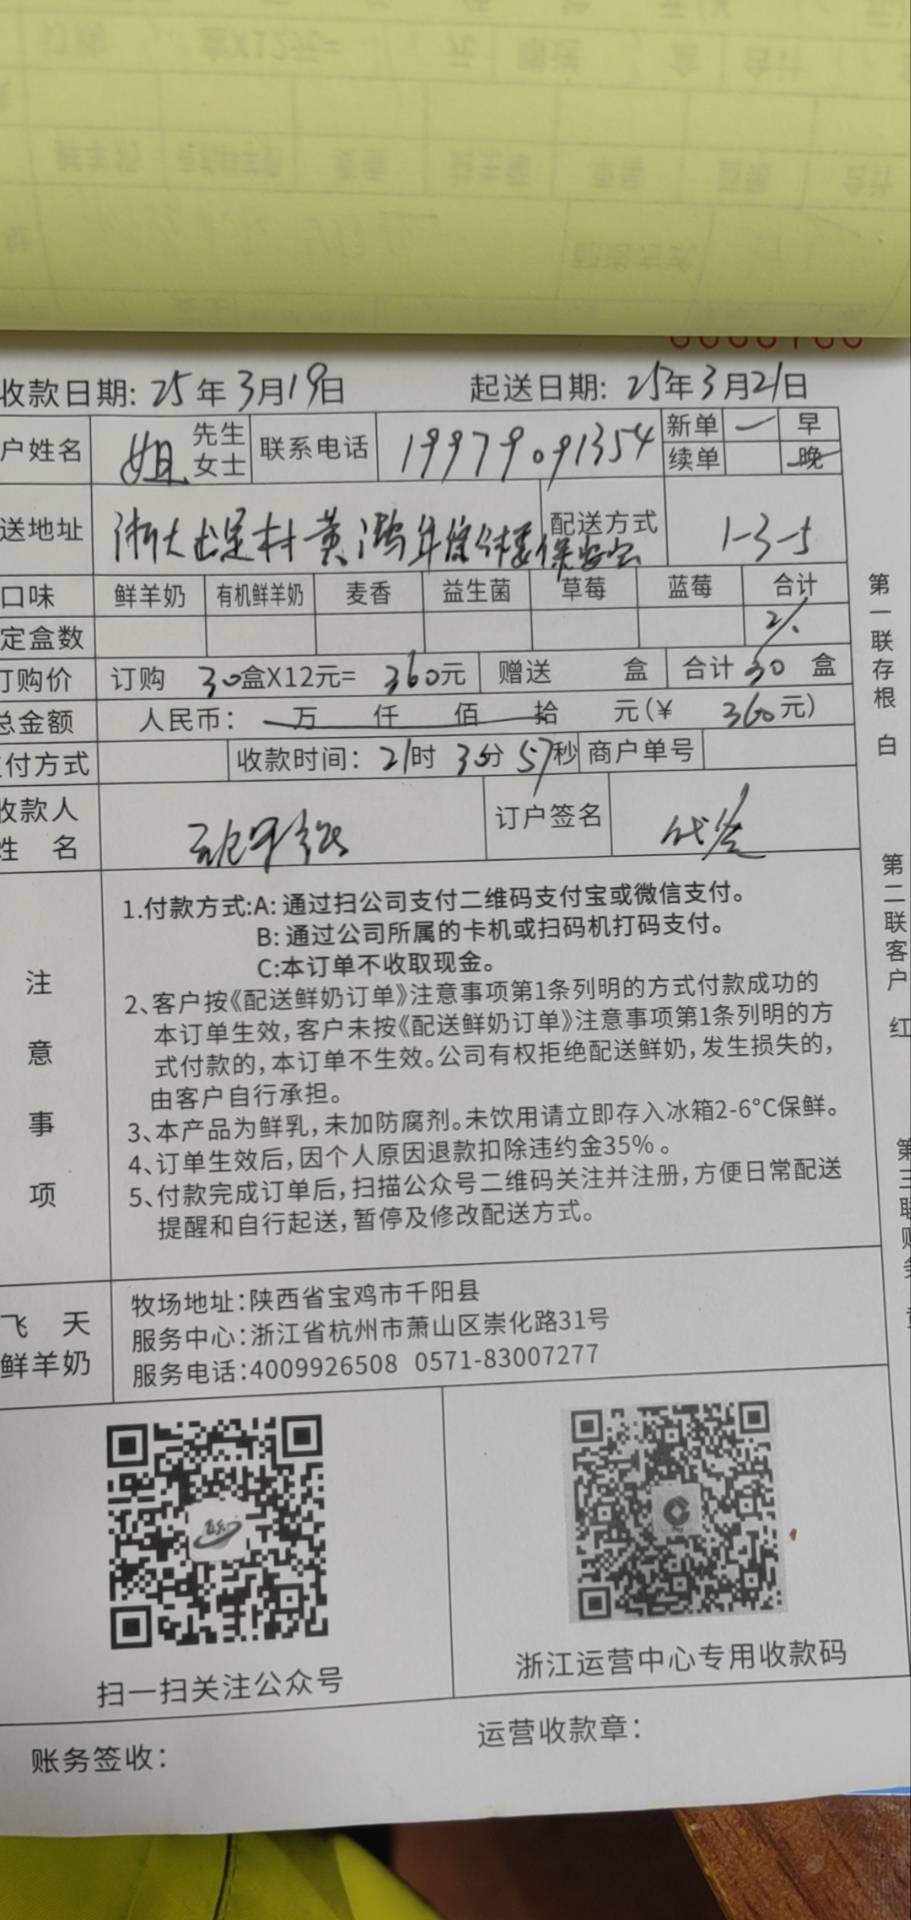 收款日期: 25年3月19日 起送日期: 25年3月21日
户姓名 姐 先生 女士 联系电话 19979091354 新单 一 早
续单 晚
送地址 浙大 村黄 保安 配送方式 1-3-5
口味 鲜羊奶 有机鲜羊奶 麦香 益生菌 草莓 蓝莓 合计
定盒数
订购价 订购 30盒X12元= 360元 赠送 盒 合计 30 盒
总金额 人民币: 万 仟 佰 拾 元(¥ 360元)
付方式 收款时间: 21时 3分 57秒 商户单号
收款人
姓 名 订户签名 代签
注意事项
1.付款方式:A: 通过扫公司支付二维码支付宝或微信支付。
B: 通过公司所属的卡机或扫码机打码支付。
C:本订单不收取现金。
2、客户按《配送鲜奶订单》注意事项第1条列明的方式付款成功的
本订单生效,客户未按《配送鲜奶订单》注意事项第1条列明的方
式付款的,本订单不生效。公司有权拒绝配送鲜奶,发生损失的,
由客户自行承担。
3、本产品为鲜乳,未加防腐剂。未饮用请立即存入冰箱2-6°C保鲜。
4、订单生效后,因个人原因退款扣除违约金35%。
5、付款完成订单后,扫描公众号二维码关注并注册,方便日常配送
提醒和自行起送,暂停及修改配送方式。
飞 天
鲜羊奶
牧场地址:陕西省宝鸡市千阳县
服务中心:浙江省杭州市萧山区崇化路31号
服务电话:4009926508 0571-83007277
扫一扫关注公众号
浙江运营中心专用收款码
账务签收:
运营收款章:
第一联存根 白
第二联客户 红
第三联财务